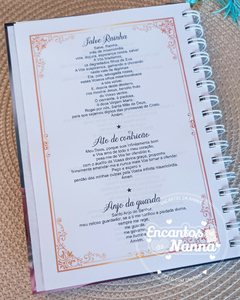 Salve Rainha
Salve, Rainha,
mãe de misericórdia,
vida, doçura, esperança nossa, salve!
A Vós bradamos,
os degredados filhos de Eva.
A Vós suspiramos, gemendo e chorando
neste vale de lágrimas.
Eia, pois, advogada nossa,
esses Vossos olhos misericordiosos
a nós volvei.
E, depois deste desterro,
nos mostrai Jesus, bendito fruto
do Vosso ventre.
Ó clemente, ó piedosa,
ó doce Virgem Maria.
Rogai por nós, Santa Mãe de Deus,
para que sejamos dignos das promessas de Cristo.
Amém.
Ato de contrição
Meu Deus, porque sois infinitamente bom
e Vos amo de todo o meu coração,
pesa-me de Vos ter ofendido e,
com o auxílio da Vossa divina graça, proponho
firmemente emendar-me e nunca mais Vos tornar a ofender.
Peço e espero o
perdão das minhas culpas pela Vossa infinita misericórdia.
Amém.
Anjo da guarda
Santo Anjo do Senhor,
meu zeloso guardador, se a ti me confiou a piedade divina,
sempre me rege,
me guarde,
me governe,
me ilumine.
Amém.
Encantos
da
Nanna